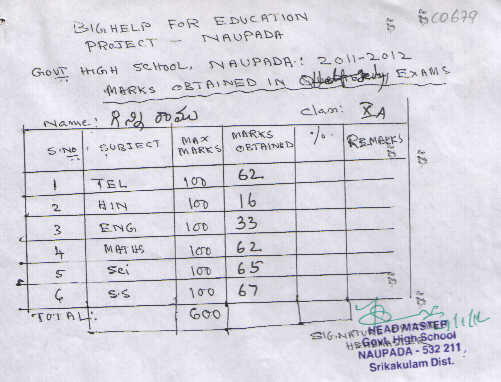 CO679
BIGHELP FOR EDUCATION
PROJECT - NAUPADA
GOVT HIGH SCHOOL, NAUPADA.: 2011-2012
MARKS OBTAINED IN EXAMS
Name: రాము Class: X A
S.NO SUBJECT MAX MARKS MARKS OBTAINED % REMARKS
1 TEL 100 62
2 HIN 100 16
3 ENG 100 33
4 MATHS 100 62
5 Sci 100 65
6 S.S 100 67
TOTAL: 600
HEAD MASTER
Govt. High School
NAUPADA - 532 211,
Srikakulam Dist.